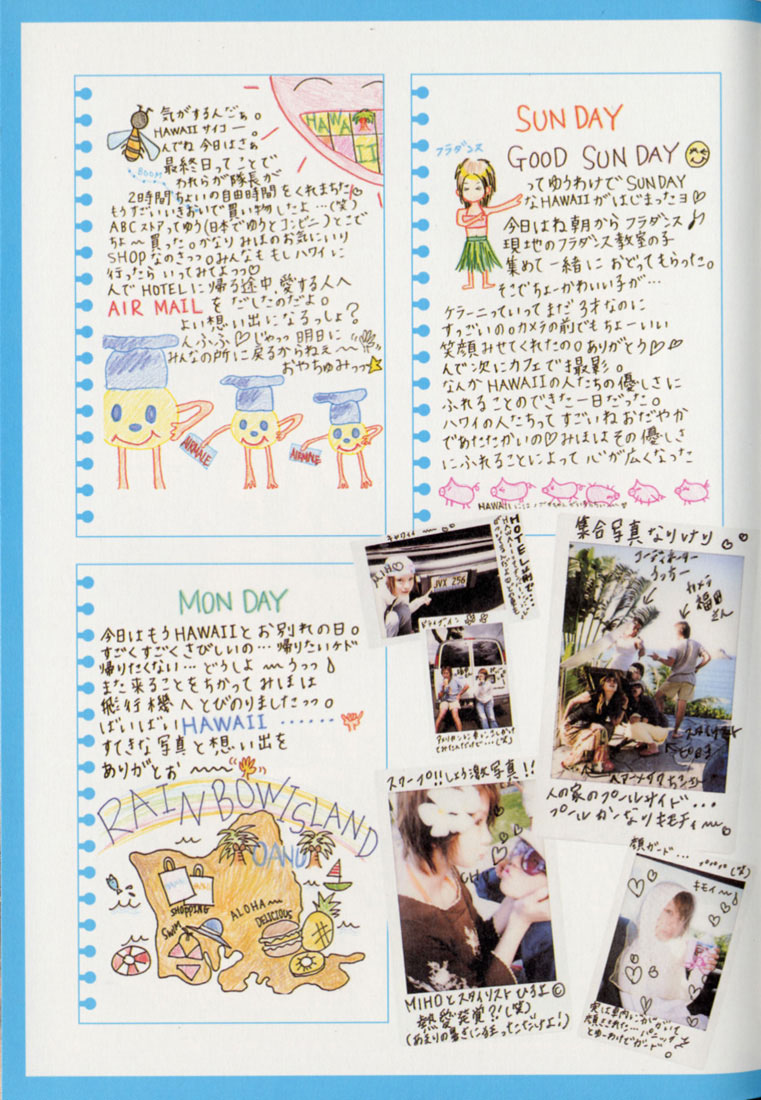 気がするんだぁ。
HAWAII サイコー。
んでね 今日はさぁ
最終日ってことで
BOOM
われらが隊長が
2時間ちょいの自由時間をくれまちた♡
もうすごいいきおいで買い物したよ…(笑)
ABCストアってゆう(日本でゆうとコンビニ)とこで
ちょ〜買った。かなりみほのお気にいり
SHOPなのさっつ。みんなももしハワイに
行ったらいってみてよっつ♡
んでHOTELに帰る途中、愛する人へ
AIR MAILをだしたのだよ。
よい想い出になるっしょ?
んふふ♡じゃっつ明日に
みんなの所に戻るからねぇ〜
おやちゅみっつ☆
HAWAII
AIRMALE
AIRMALE
SUNDAY
フラダンス
GOOD SUNDAY
ってゆうわけでSUNDAY
なHAWAIIがはじまったヨ♡
今日はね朝からフラダンス♪
現地のフラダンス教室の子
集めて一緒におどってもらった。
そこでちょーかわいい子が…
ケラーニっていってまだ3才なのに
すっごいの。カメラの前でもちょーいい
笑顔みせてくれたの。ありがとう♡♡
んで次にカフェで撮影。
なんかHAWAIIの人たちの優しさに
ふれることのできた一日だった。
ハワイの人たちってすごいねおだやか
であたたかいの♡みほはその優しさ
にふれることによって心が広くなった
HAWAIIには
MONDAY
今日はもうHAWAIIとお別れの日。
すごくすごくさびしいの…帰りたいケド
帰りたくない…どうしよ〜うっつ♪
また来ることをちかってみほは
飛行機へとびのりましたっつ。
ばいばいHAWAII……
すてきな写真と想い出を
ありがとぉ〜
RAINBOW ISLAND
OAHU
SHOPPING
ALOHA〜
DELICIOUS
SWIM
MIHO
JVX 256
HOTEL
集合写真なりけり
コーディネーター
うっちー
カメラ
福岡
さん
人の家のプールサイド…
プールかなりキモチィ〜
スクープ!!しょう激写真!!
MIHOとスタイリストひろよ©
熱愛発覚?!(笑)
(あまりの暑さに狂っただけよ!)
顔ガード…(笑)
キモイ〜♪